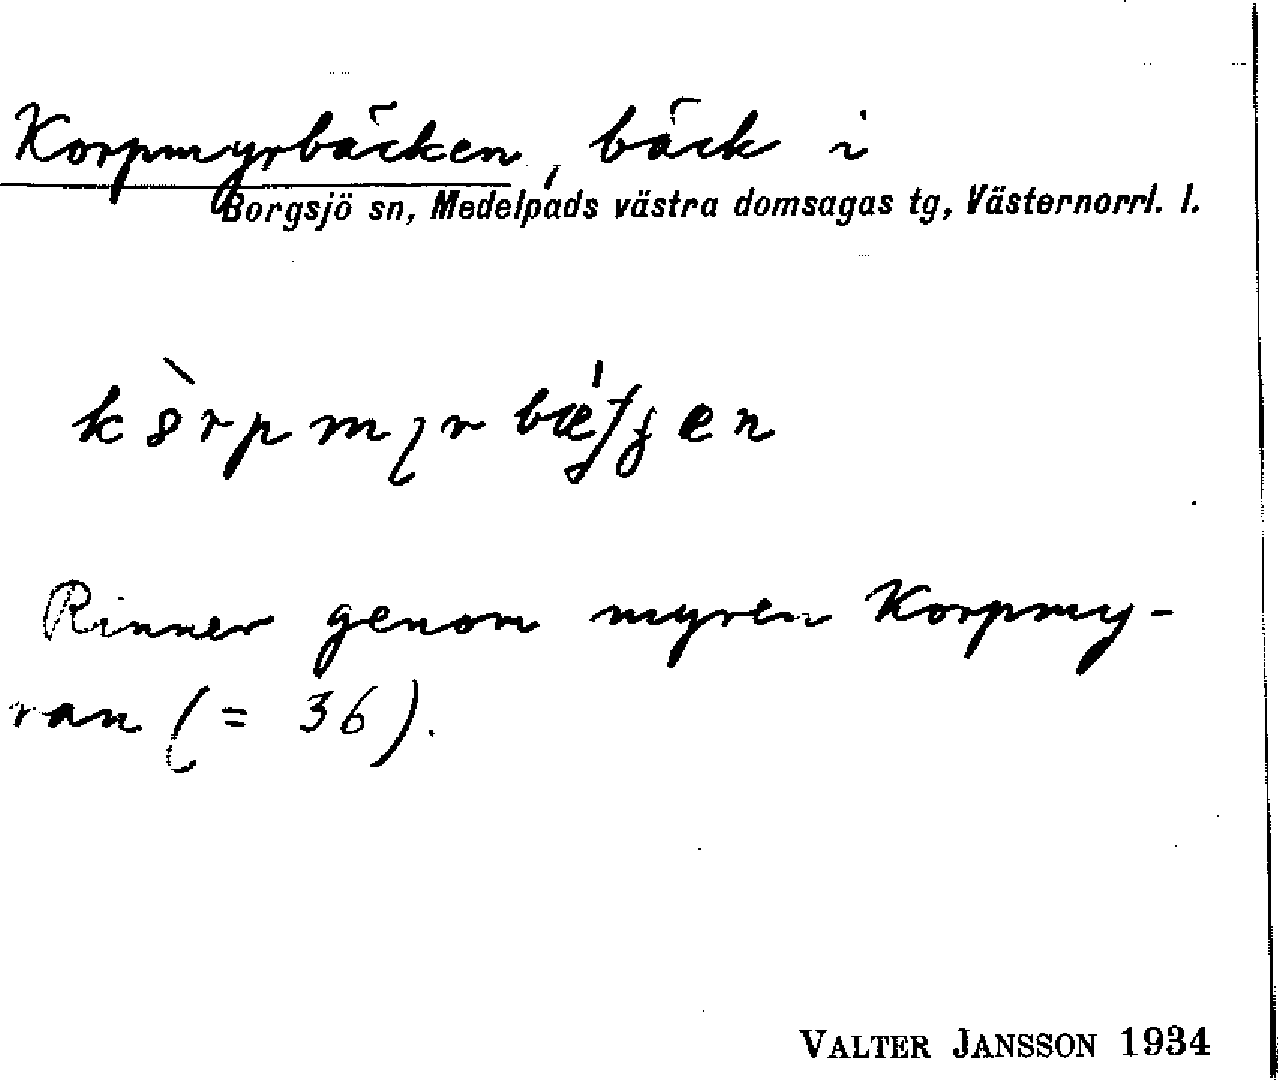 Korpmyrbäcken, bäck i
Borgsjö sn, Medelpads västra domsagas tg, Västernorrl. l.
Rinner genom myren Korpmy-
ran (= 36).
VALTER JANSSON 1934